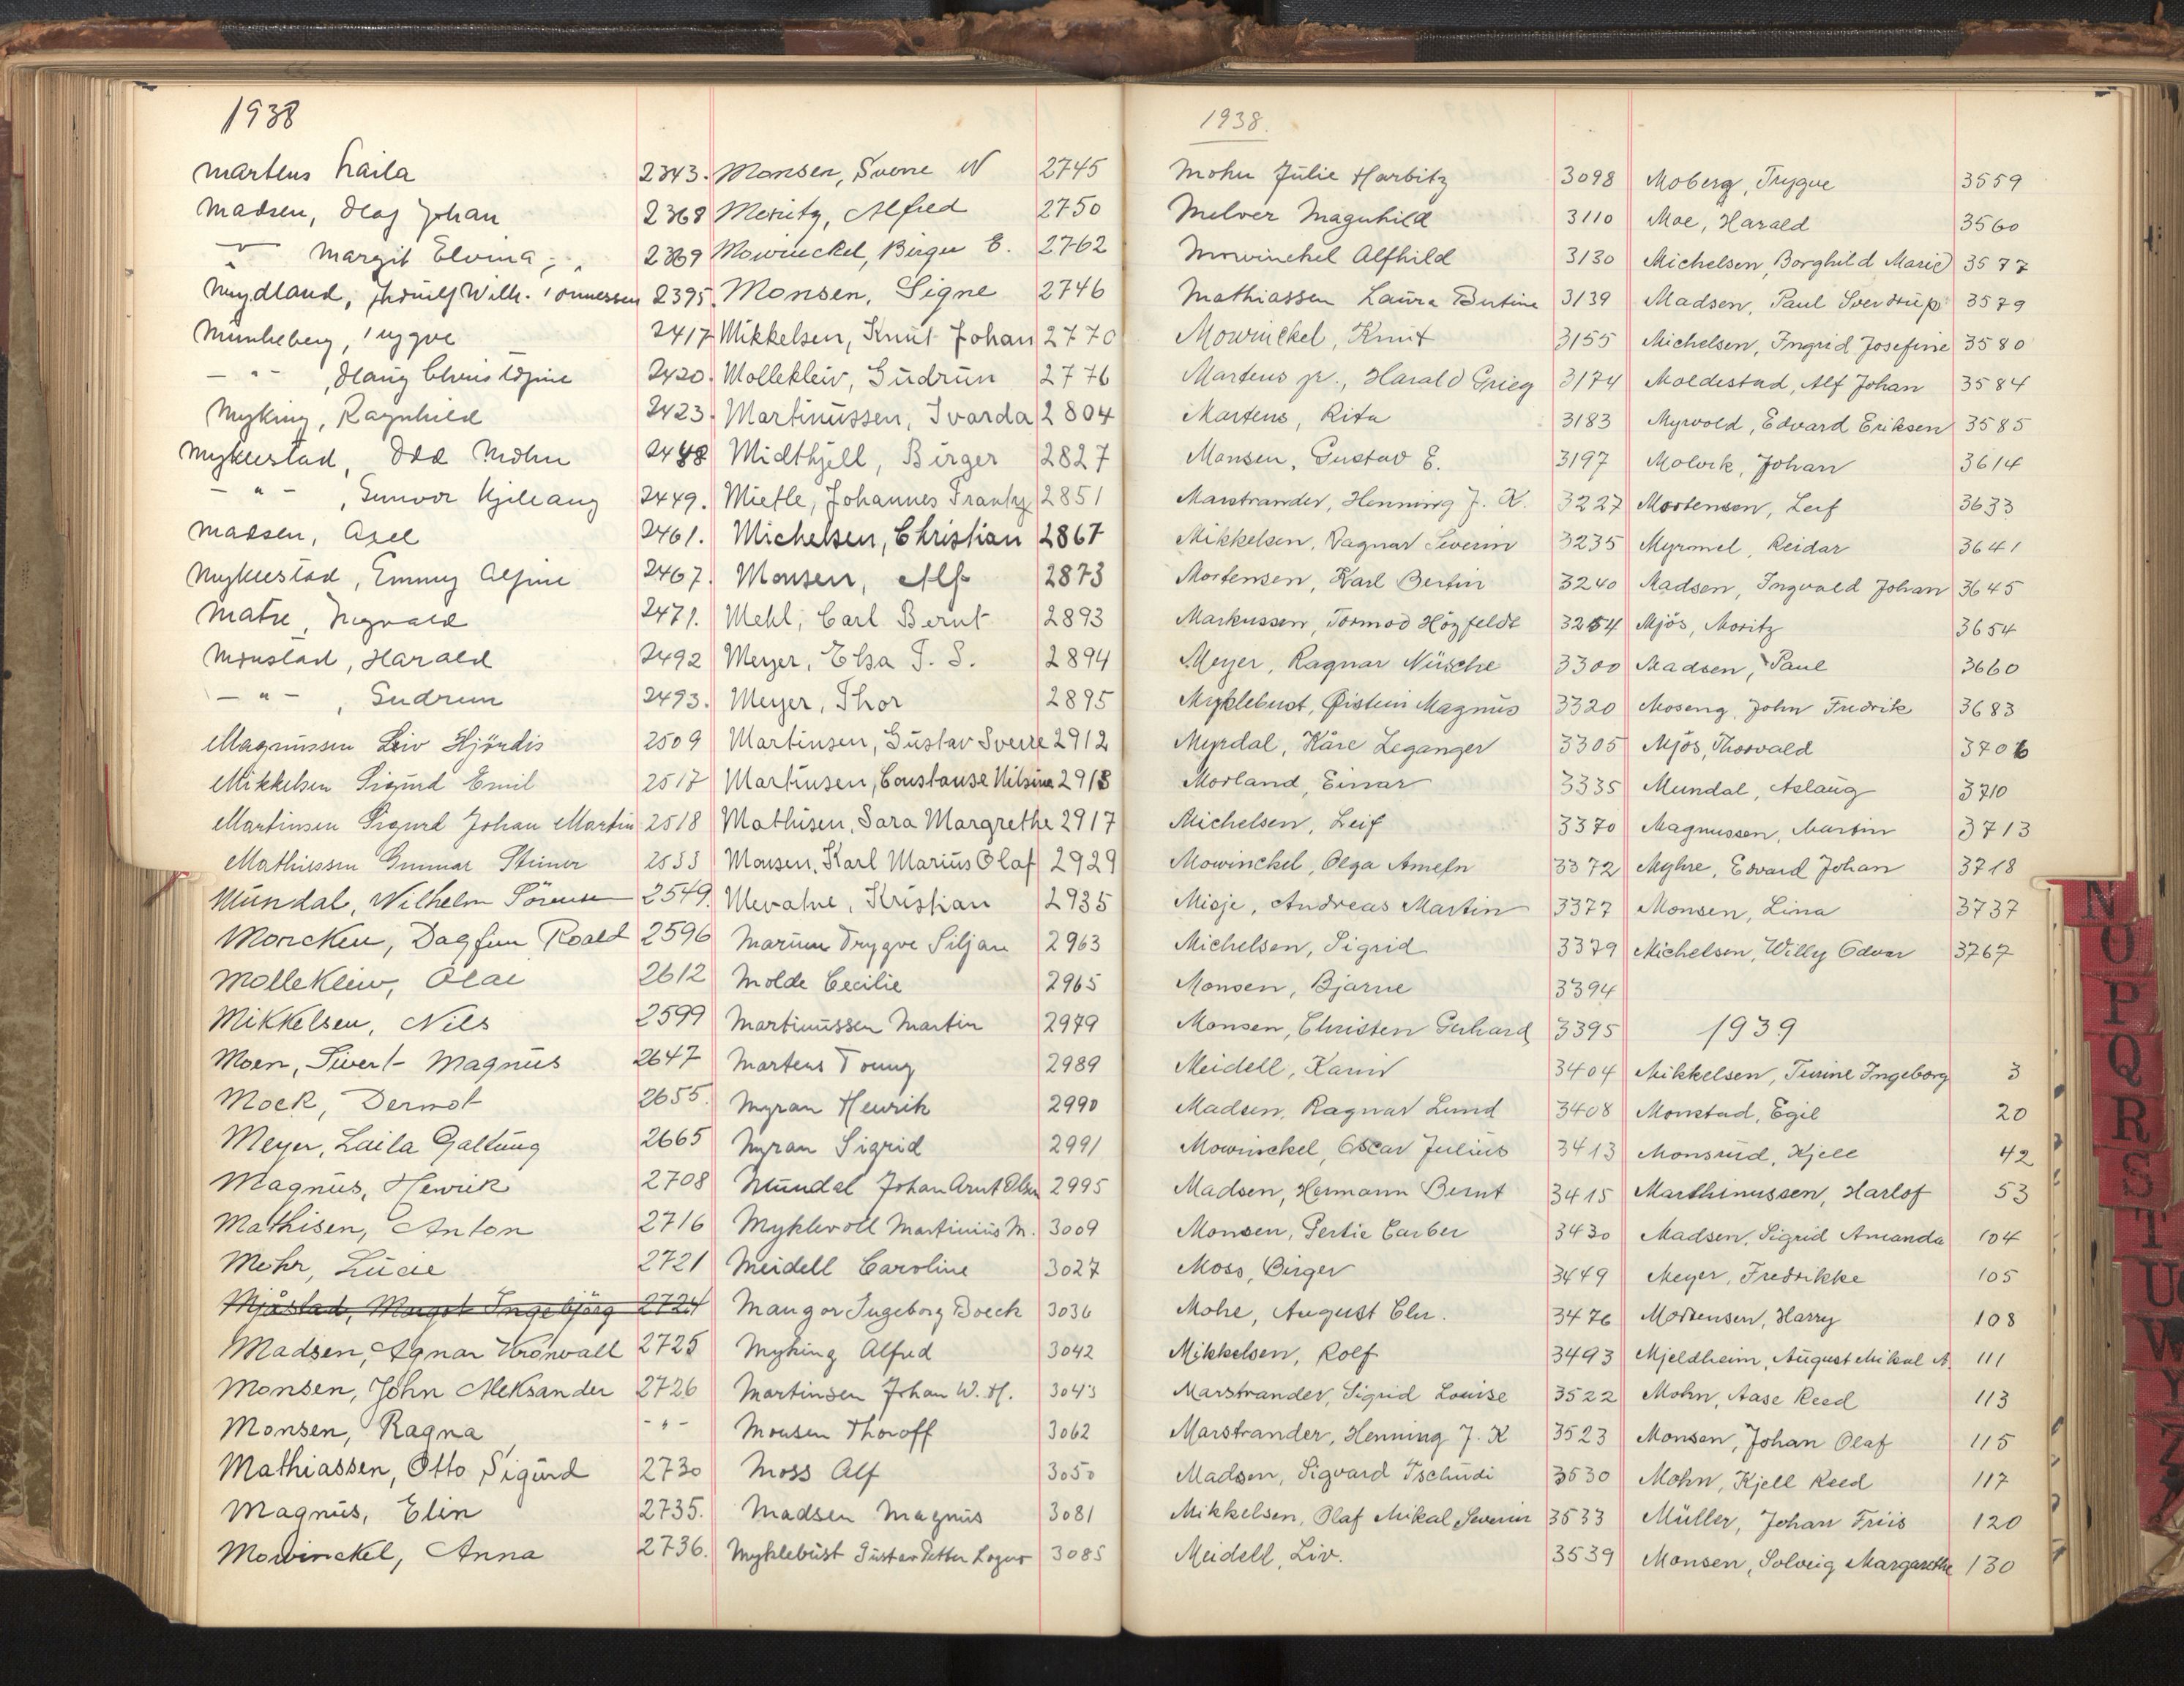 1938
Martens Laila 2343.
Madsen, Olaf Johan 2368
" Margit Elvina 2369
Mydland, Wilh. Tønnessen 2395.
Munkeberg, Trygve 2417
- " - , 2420.
Myking, Ragnhild 2423.
Myklestad, Odd Mohn 2448
- " - , Gunvor 2449.
Madsen, Axel 2461.
Myklestad, Emmy Alfine 2467.
Matre, Ingvald 2471.
Monstad, Harald 2492
- " - , Gudrun 2493.
Magnussen Liv Hjördis 2509
Mikkelsen Sigurd Emil 2517
Martinsen Sigurd Johan Martin 2518
Mathiassen Gunnar Steiner 2533
Mundal, Wilhelm Sörensen 2549.
Morcken, Dagfinn Roald 2596
Mollekleiv, Olai 2612
Mikkelsen, Nils 2599
Moen, Sivert Magnus 2647
Mock, Dermot 2655.
Meyer, Laila Galtung 2665
Magnus, Henrik 2708
Mathisen, Anton 2716
Mohr, Lucie 2721
Mjåstad, Margot Ingebjörg 2724
Madsen, Agnar Kronvall 2725
Monsen, John Aleksander 2726
Monsen, Ragna - " -
Mathiassen, Otto Sigurd 2730
Magnus, Elin 2735.
Mowinckel, Anna 2736.
Monsen, Sverre W 2745
Moritz, Alfred 2750
Mowinckel, Birger E. 2762
Monsen, Signe 2746
Mikkelsen, Knut Johan 2770
Mollekleiv, Gudrun 2776
Martinussen, Ivarda 2804
Midthjell, Birger 2827
Mietle, Johannes Frantz 2851
Michelsen, Christian 2867
Monsen, Alf 2873
Mehl, Carl Bernt 2893
Meyer, Elsa T. S. 2894
Meyer, Thor 2895
Martinsen, Gustav Sverre 2912
Martinsen, Constanse Nilsine 2913
Mathisen, Sara Margrethe 2917
Monsen, Karl Marius Olaf 2929
Mevatne, Kristian 2935
Trygve Siljan 2963
Molde Cecilie 2965
Martinussen Martin 2979
Martens Tonny 2989
Myran Henrik 2990
Myran Sigrid 2991
Mundal Johan Arnt Olsen 2995
Myklevoll Martinius M. 3009
Meidell Caroline 3027
Mangor Ingeborg Boeck 3036
Myking Alfred 3042
Martinsen Johan W. H. 3043
Monsen Thoroff 3062
Moss Alf 3050
Madsen Magnus 3081
Myklebust Gustav Petter 3085
1938.
Mohn Julie Harbitz 3098
Melver Magnhild 3110
Mowinckel Alfhild 3130
Mathiassen Laura Bertine 3139
Mowinckel, Knut 3155
Martens jr., Harald Grieg 3174
Martens, Rita 3183
Monsen, Gustav E. 3197
Marstrander, Henning J. K. 3227
Mikkelsen, Ragnar Severin 3235
Mortensen, Karl Bertin 3240
Markussen, Tormod Höyfeldt 3254
Meyer, Ragnar Nüsche 3300
Myklebust, Øistein Magnus 3320
Myrdal, Kåre Leganger 3305
Morland, Einar 3335
Michelsen, Leif 3370
Mowinckel, Olga Ameln 3372
Misje, Andreas Martin 3377
Michelsen, Sigrid 3379
Monsen, Bjarne 3394
Monsen, Christen Gerhard 3395
Meidell, Karin 3404
Madsen, Ragnar Lund 3408
Mowinckel, Oscar Julius 3413
Madsen, Hermann Bernt 3415
Monsen, Gertie Carber 3430
Moss, Birger 3449
Mohr, August Chr. 3476
Mikkelsen, Rolf 3493
Marstrander, Sigrid Louise 3522
Marstrander, Henning J. K 3523
Madsen, Sigvard Tschudi 3530
Mikkelsen, Olaf Mikal Severin 3533
Meidell, Liv. 3539
Moberg, Trygve 3559
Moe, Harald 3560
Michelsen, Borghild Marie 3577
Madsen, Paul Sverdrup 3579
Michelsen, Ingrid Josefine 3580
Moldestad, Alf Johan 3584
Myrvold, Edvard Eriksen 3585
Molvik, Johan 3614
Mortensen, Leif 3633
Myrmel, Reidar 3641
Madsen, Ingvald Johan 3645
Mjös, Moritz 3654
Madsen, Paul 3660
Moseng, John Fredrik 3683
Mjös, Thorvald 3706
Mundal, Aslaug 3710
Magnussen, Martin 3713
Myhre, Edvard Johan 3718
Monsen, Lina 3737
Michelsen, Willy Odvar 3767
1939
Mikkelsen, Turine Ingeborg 3
Monstad, Egil 20
Monsrud, Kjell 42
Marthinussen, Harlof 53
Madsen, Sigrid Amanda 104
Meyer, Fredrikke 105
Mortensen, Harry 108
Mjeldheim, August Mikal A. 111
Mohn, Aase Reed 113
Monsen, Johan Olaf 115
Mohn, Kjell Reed 117
Müller, Johan Friis 120
Monsen, Solveig Margarethe 130
N
O
P
Q
R
S
T
U
W
Y
Z